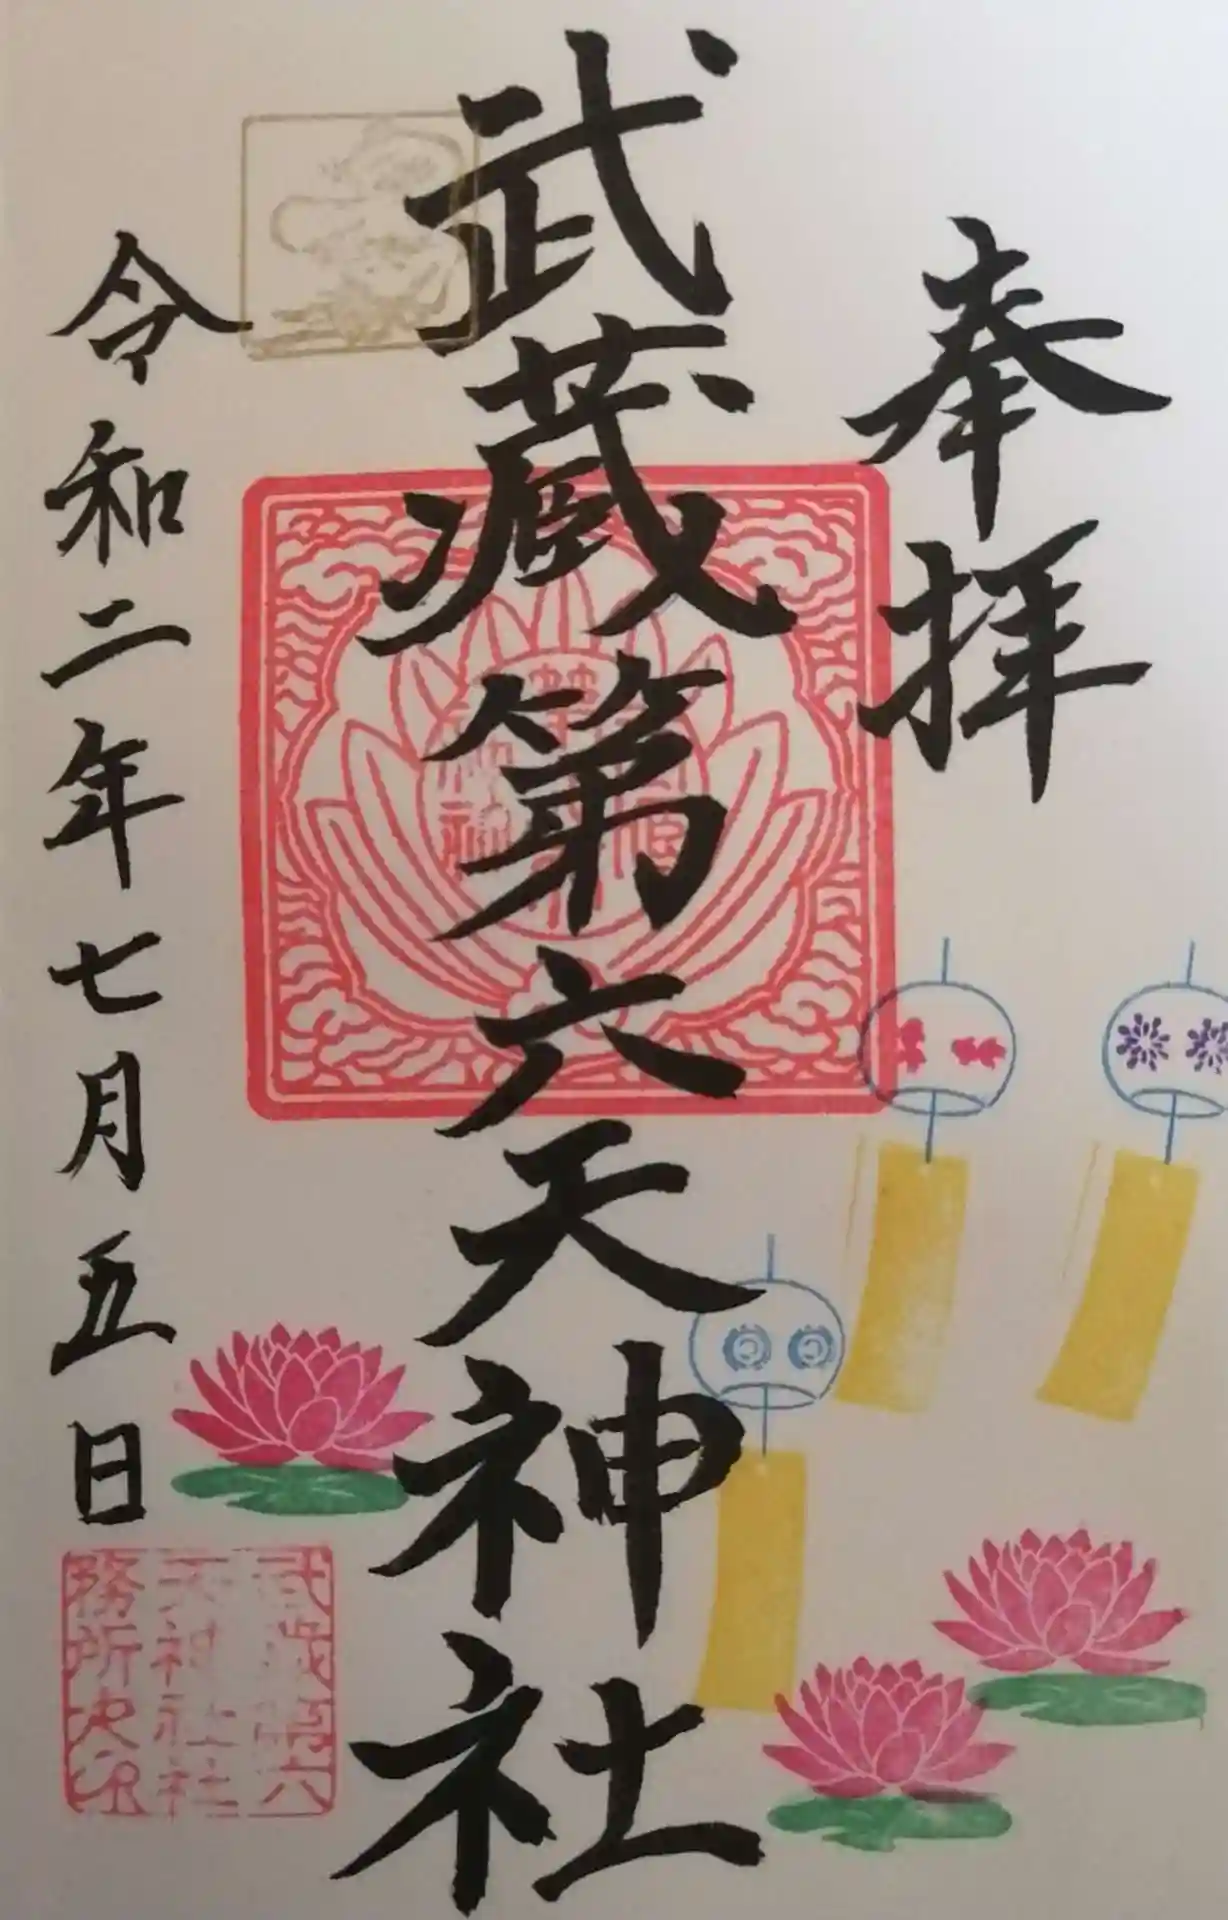 奉拝
武蔵第六天神社
令和二年七月五日
武蔵第六
天神社社
務所之印